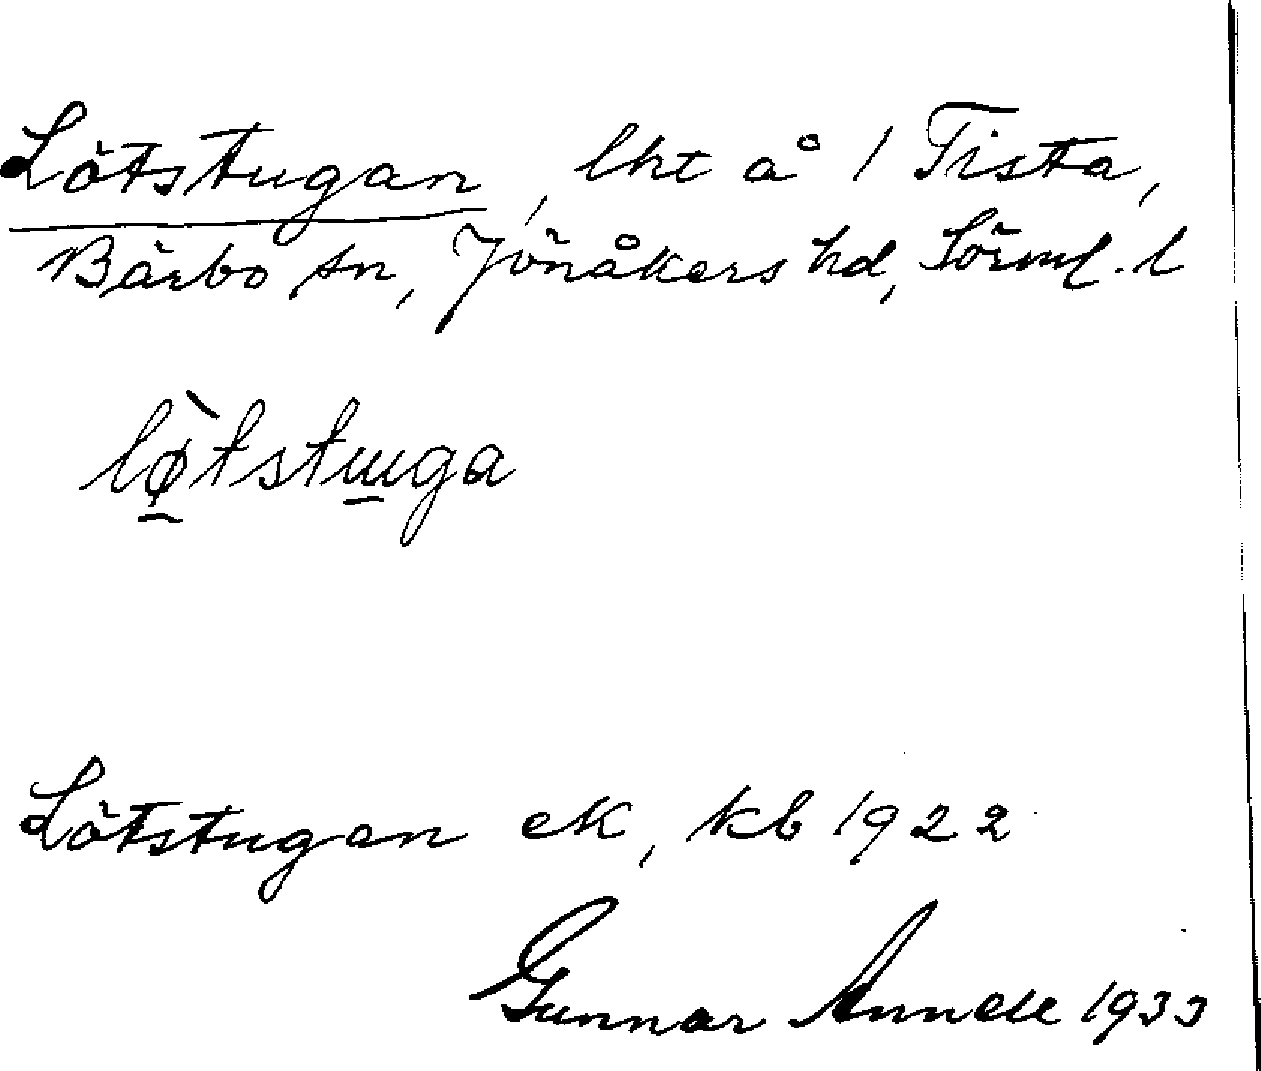 Lötstugan, lht å 1 Tista,
Bärbo sn, Jönåkers hd, Sörml. l
lø̀tstuga
Lötstugan ek, kb 1922
Gunnar Annell 1933